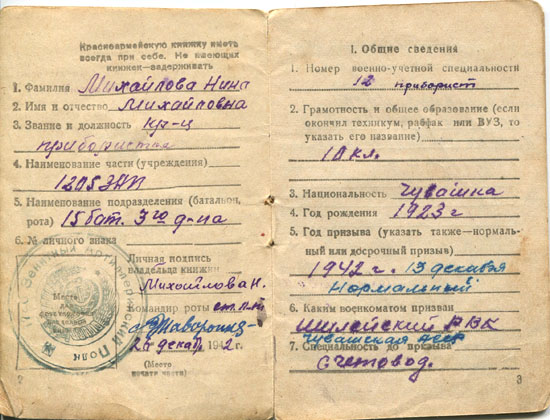 Красноармейскую книжку иметь
всегда при себе. Не имеющих
книжек—задерживать
1. Фамилия Михайлова Нина
2. Имя и отчество Михайловна
3. Звание и должность Кр-ц
прибористка
4. Наименование части (учреждения)
1205 ЗАП
5. Наименование подразделения (батальон,
рота) 15 бат. 3го д-на
6. № личного знака
Личная подпись
владельца книжки
Михайлова Н.
Командир роты
24 декабр 1942
(Место
печати части)
2
I. Общие сведения
1. Номер военно-учетной специальности
12 приборист
2. Грамотность и общее образование (если
окончил техникум, рабфак или ВУЗ, то
указать его название)
10 кл.
3. Национальность Чувашка
4. Год рождения 1923 г
5. Год призыва (указать также—нормаль-
ный или досрочный призыв)
1942 г. 13 декабря
Нормальный
6. Каким военкоматом призван
РВК
Чувашская АССР
7. Специальность до призыва
Счетовод.
3